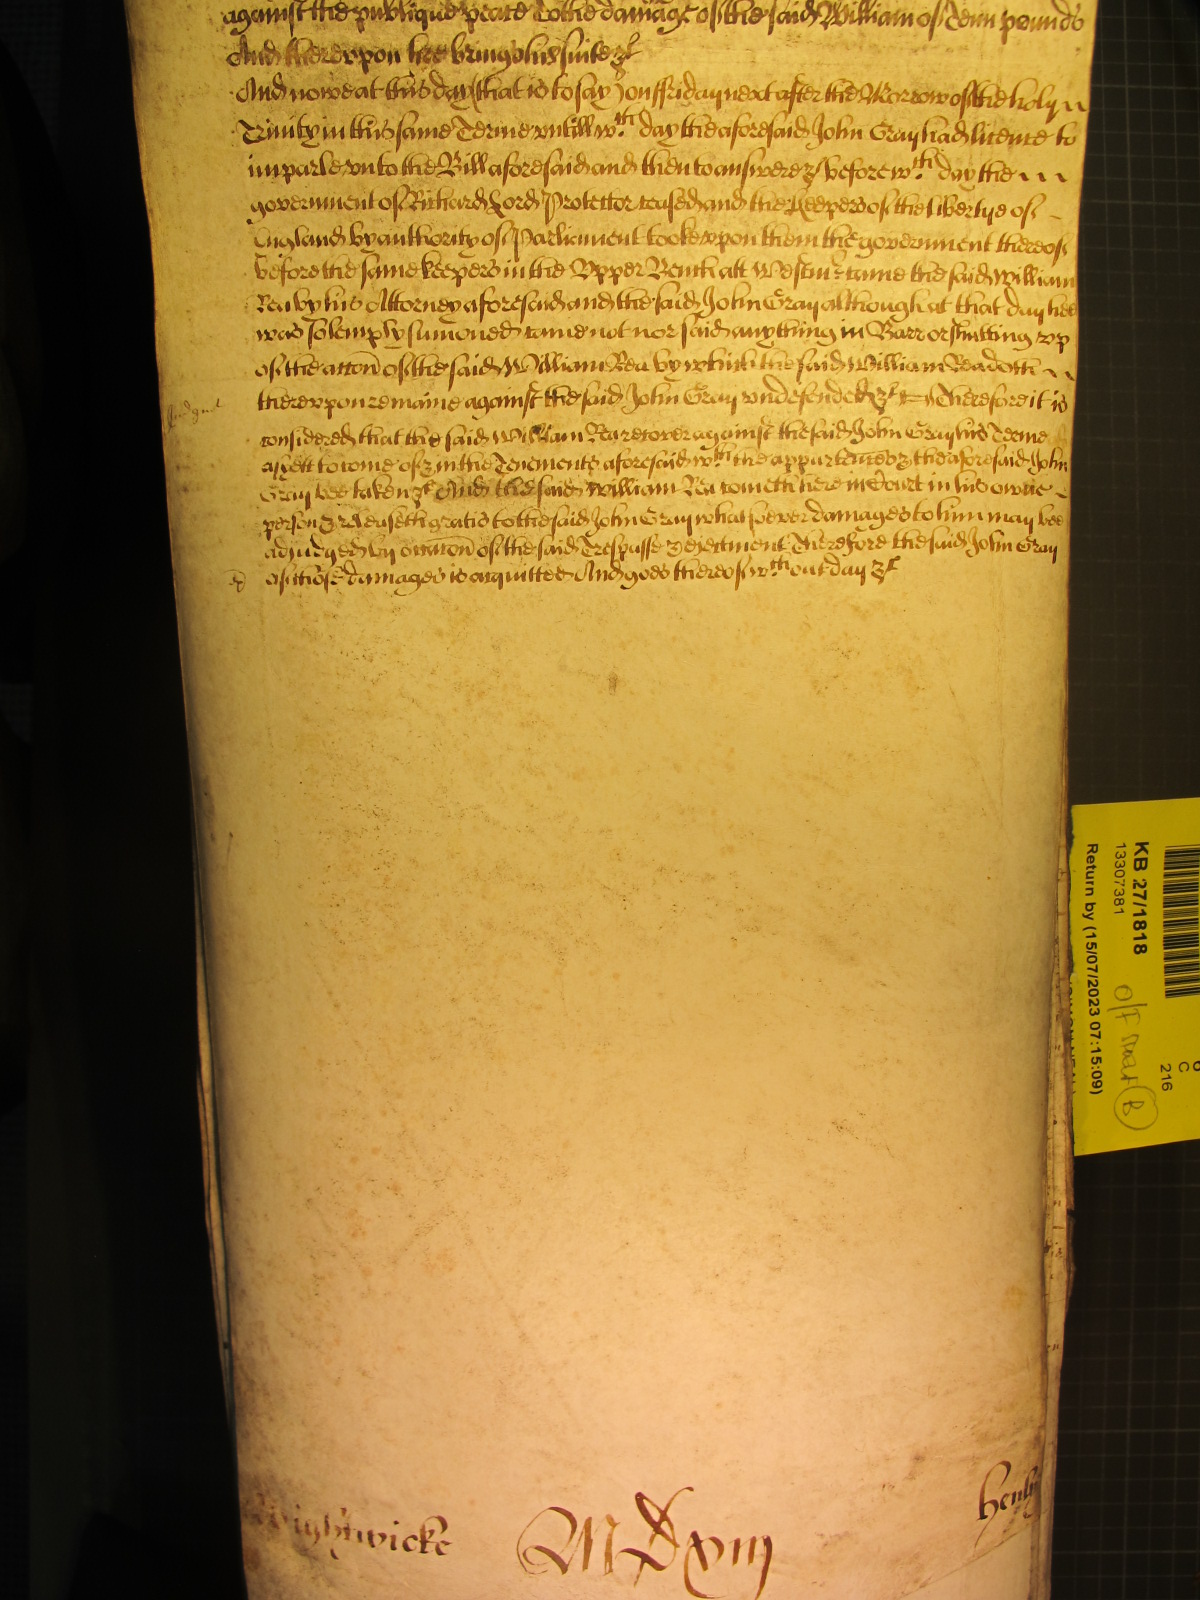 against the publique peace To the damage of the said William of Tenn pounds
And thereupon hee bringeth his suite &c
And nowe at this day (that is to say) on ffriday next after the Morrow of the holy
Trinity in this same Terme untill wch day the aforesaid John Gray had licence to
imparle unto the Bill aforesaid and then to answere &c before wch day the
government of Richard Lord Protector ceased and the Keepers of the libertye of
England by authority of Parliament tooke upon them the government thereof
before the same keepers in the Upper Bench att Westmr came the said William
Rea by his Attorney aforesaid and the said John Gray although at that day hee
was solemply sumoned came not nor said any thing in Barr or shutting up
of the accon of the said William Rea by which the said William Rea doth
thereupon remaine against the said John Gray undefended &c Therefore it is
Judgmt
considered that the said William Rea recover against the said John Gray his Terme
as yett to come of & in the Tenements aforesaid wth the appurtenncs & the aforesaid John
Gray bee taken &c And the said William Rea cometh here in Court in his owne
person & releaseth gratis to the said John Gray whatsoever damages to him may bee
adjudged by occacon of the said Trespasse & ejectment Therefore the said John Gray
of those damages is acquitted And goes thereof wthout day &c
KB 27/1818
13307381
Return by (15/07/2023 07:15:09)
C
216
B
Wightwicke
MDxviij
Henly